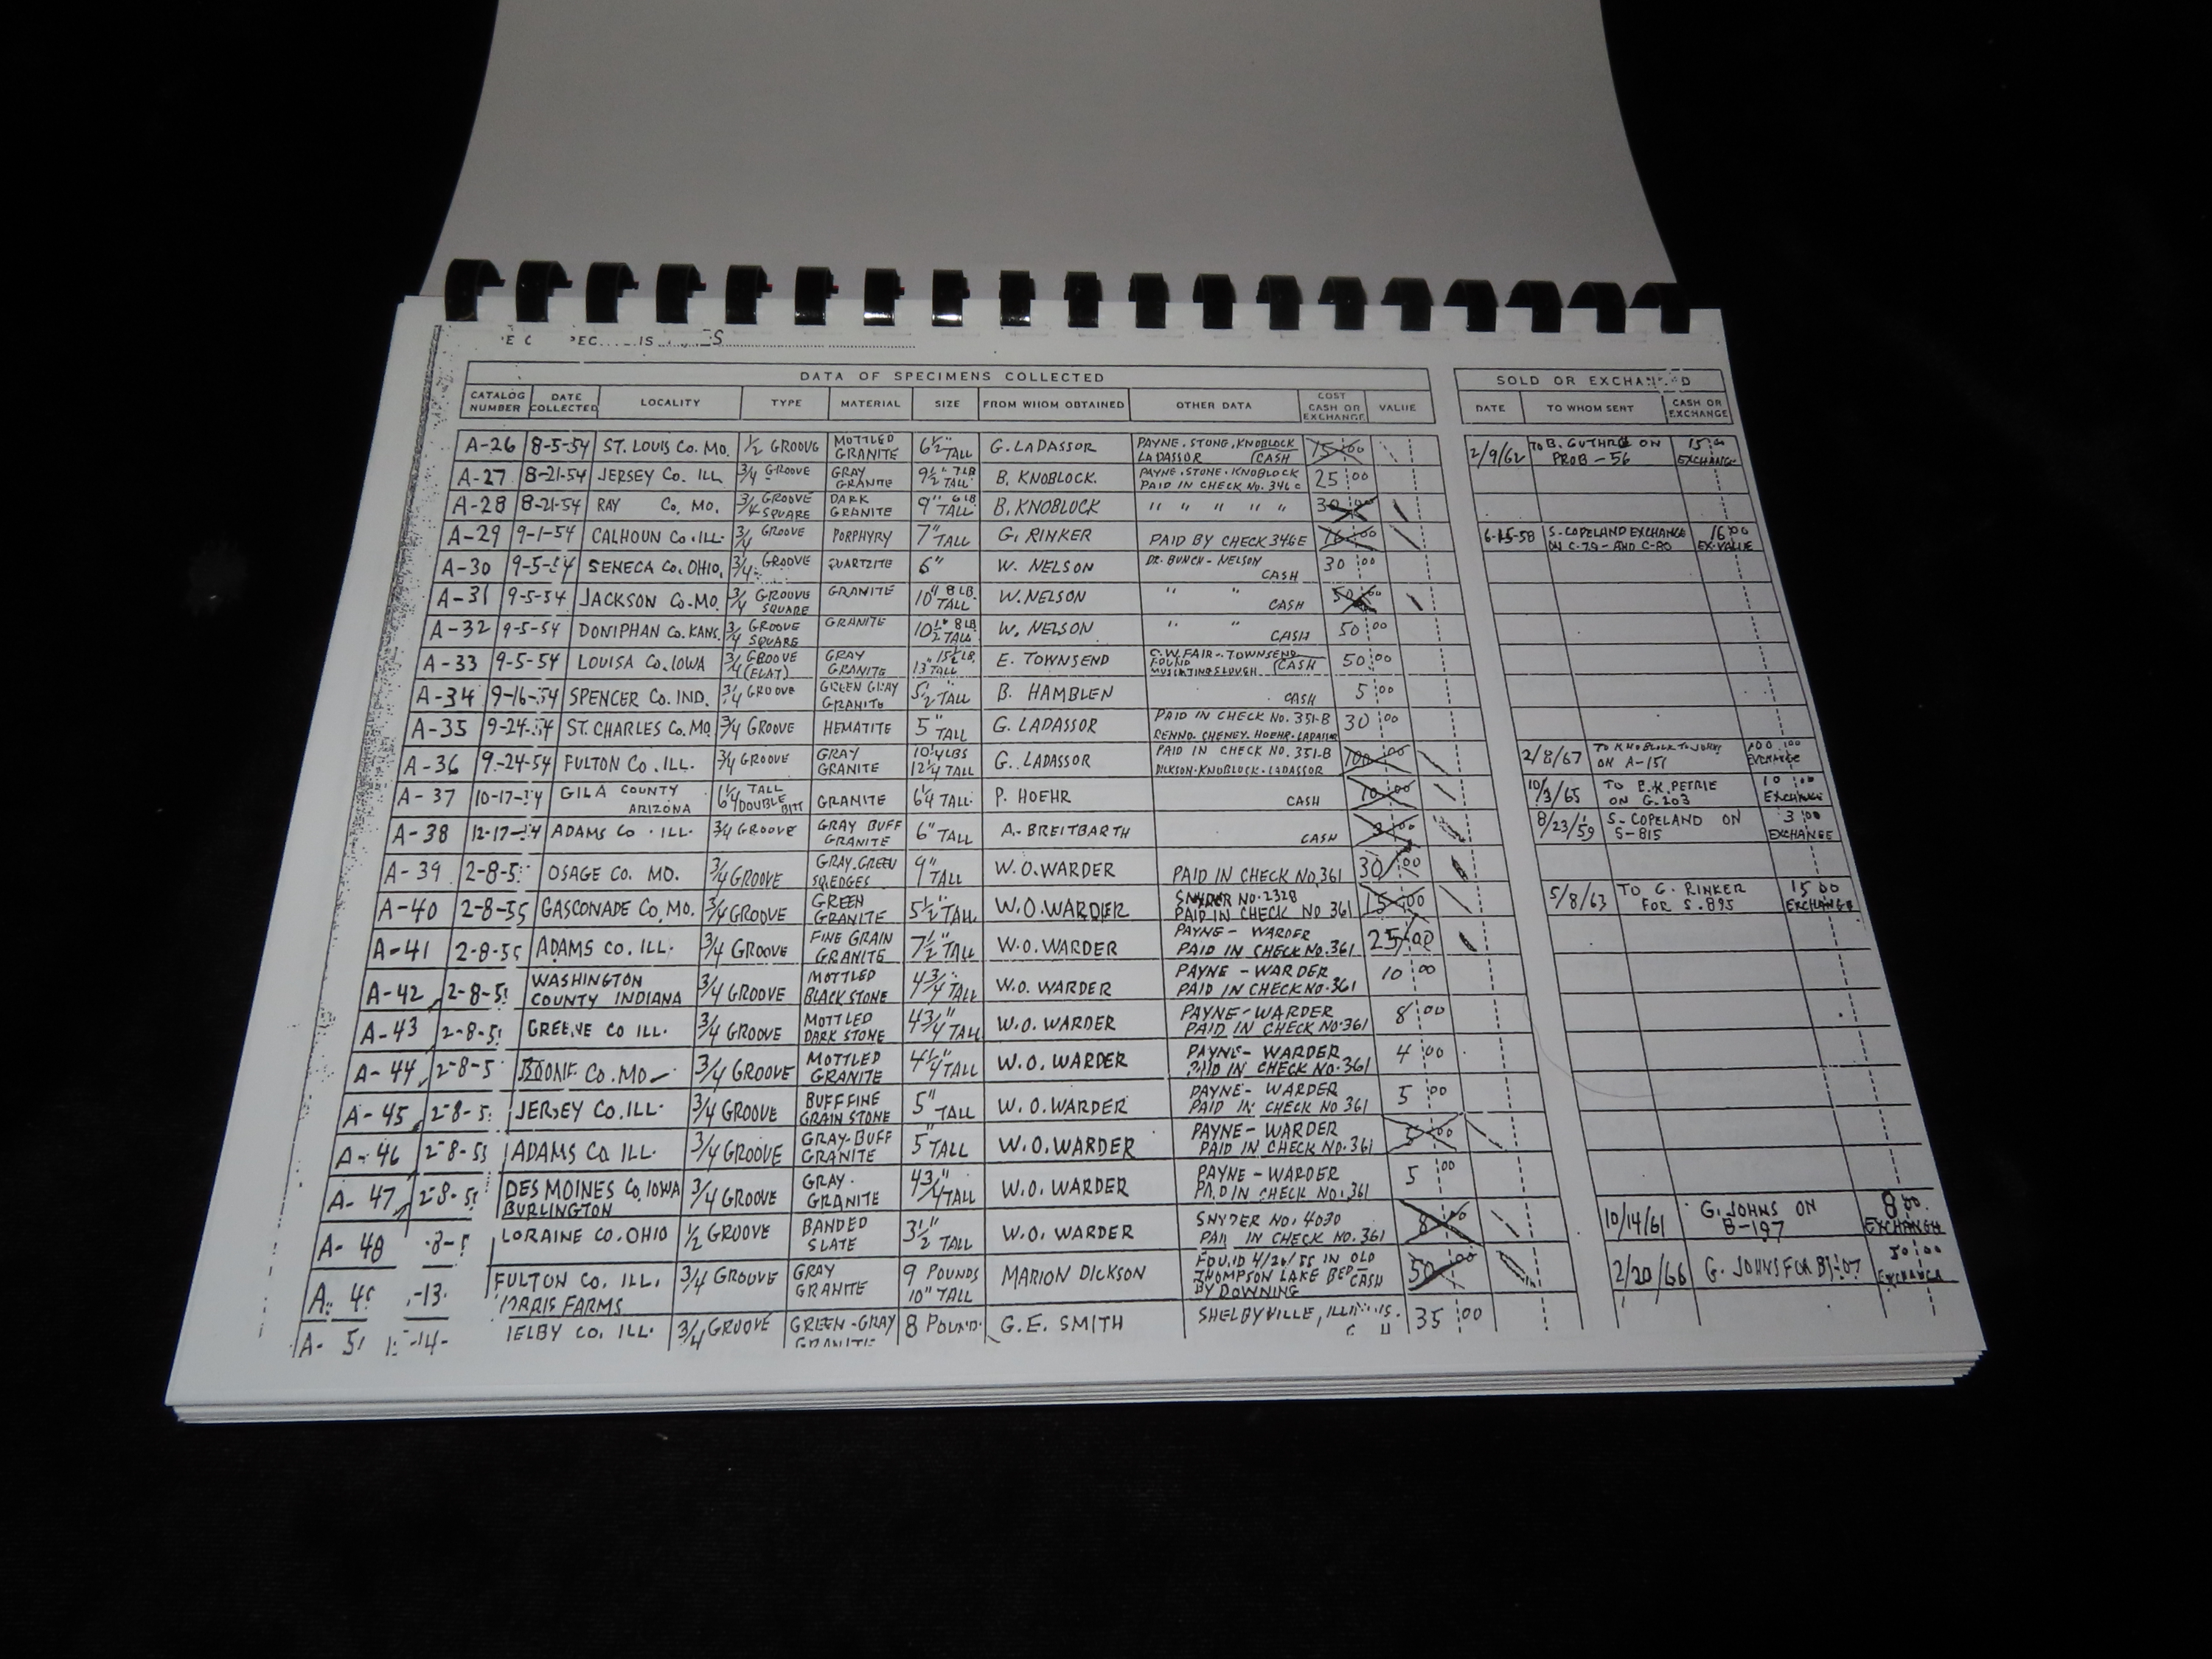 DATA OF SPECIMENS COLLECTED SOLD OR EXCHANGED
CATALOG NUMBER DATE COLLECTED LOCALITY TYPE MATERIAL SIZE FROM WHOM OBTAINED OTHER DATA COST CASH OR EXCHANGE VALUE DATE TO WHOM SENT CASH OR EXCHANGE
A-26 8-5-54 ST. LOUIS CO. MO. 1/2 GROOVE MOTTLED GRANITE 6 1/2" TALL G. LADASSOR PAYNE. STONG. KNOBLOCK LADASSOR CASH 15 00 2/9/62 TO B. GUTHRIE ON PROB-56 15 00 EXCHANGE
A-27 8-21-54 JERSEY CO. ILL 3/4 GROOVE GRAY GRANITE 9 1/2" 7 LB TALL B. KNOBLOCK. PAYNE. STONE. KNOBLOCK PAID IN CHECK NO. 346 C 25 00
A-28 8-21-54 RAY CO. MO. 3/4 GROOVE SQUARE DARK GRANITE 9" 6 LB TALL B. KNOBLOCK " " " " " 30 00
A-29 9-1-54 CALHOUN CO. ILL. 3/4 GROOVE PORPHYRY 7" TALL G. RINKER PAID BY CHECK 346E 16 00 6-15-58 S. COPELAND EXCHANGE ON C-79 - AND C-80 16 00 EX. VALUE
A-30 9-5-54 SENECA CO. OHIO. 3/4 GROOVE QUARTZITE 6" W. NELSON DR. BUNCH - NELSON CASH 30 00
A-31 9-5-54 JACKSON CO. MO. 3/4 GROOVE SQUARE GRANITE 10" 8 LB. TALL W. NELSON " " CASH 50 00
A-32 9-5-54 DONIPHAN CO. KANS. 3/4 GROOVE SQUARE GRANITE 10 1/2" 8 LB TALL W. NELSON " " CASH 50 00
A-33 9-5-54 LOUISA CO. IOWA 3/4 GROOVE (FLAT) GRAY GRANITE 15 1/2 LB. 13" TALL E. TOWNSEND C.W. FAIR - TOWNSEND FOUND MUSCATINE SLOUGH CASH 50 00
A-34 9-16-54 SPENCER CO. IND. 3/4 GROOVE GREEN GRAY GRANITE 5 1/2" TALL B. HAMBLEN CASH 5 00
A-35 9-24-54 ST. CHARLES CO. MO. 3/4 GROOVE HEMATITE 5" TALL G. LADASSOR PAID IN CHECK NO. 351-B CHENEY. HOEHR. LADASSOR 30 00
A-36 9-24-54 FULTON CO. ILL. 3/4 GROOVE GRAY GRANITE 10 1/4 LBS 12 1/4 TALL G. LADASSOR PAID IN CHECK NO. 351-B DICKSON. KNOBLOCK. LADASSOR 100 00 2/8/67 TO KNOBLOCK TO JOHNS ON A-151 100 00 EXCHANGE
A-37 10-17-54 GILA COUNTY ARIZONA 6 1/4 TALL DOUBLE BITT GRANITE 6 1/4 TALL P. HOEHR CASH 10 00 10/3/65 TO B.K. PETRIE ON G. 203 10 00 EXCHANGE
A-38 12-17-54 ADAMS CO. ILL. 3/4 GROOVE GRAY BUFF GRANITE 6" TALL A. BREITBARTH CASH 3 00 8/23/59 S. COPELAND ON S-815 3 00 EXCHANGE
A-39 2-8-5 OSAGE CO. MO. 3/4 GROOVE GRAY. GREEN SQ. EDGES 9" TALL W. O. WARDER PAID IN CHECK NO. 361 30 00
A-40 2-8-55 GASCONADE CO. MO. 3/4 GROOVE GREEN GRANITE 5 1/2" TALL W. O. WARDER SNYDER NO. 2328 PAID IN CHECK NO 361 15 00 5/8/63 TO G. RINKER FOR S. 895 15 00 EXCHANGE
A-41 2-8-55 ADAMS CO. ILL. 3/4 GROOVE FINE GRAIN GRANITE 7 1/2" TALL W. O. WARDER PAYNE - WARDER PAID IN CHECK NO. 361 25 00
A-42 2-8-5 WASHINGTON COUNTY INDIANA 3/4 GROOVE MOTTLED BLACK STONE 4 3/4" TALL W. O. WARDER PAYNE - WARDER PAID IN CHECK NO. 361 10 00
A-43 2-8-5 GREENE CO ILL. 3/4 GROOVE MOTTLED DARK STONE 4 3/4" TALL W. O. WARDER PAYNE - WARDER PAID IN CHECK NO. 361 8 00
A-44 2-8-5 BOONE CO. MO 3/4 GROOVE MOTTLED GRANITE 4 1/4" TALL W. O. WARDER PAYNE - WARDER PAID IN CHECK NO. 361 4 00
A-45 2-8-5 JERSEY CO. ILL. 3/4 GROOVE BUFF FINE GRAIN STONE 5" TALL W. O. WARDER PAYNE - WARDER PAID IN CHECK NO 361 5 00
A-46 2-8-55 ADAMS CO ILL. 3/4 GROOVE GRAY-BUFF GRANITE 5" TALL W. O. WARDER PAYNE - WARDER PAID IN CHECK NO. 361 5 00
A-47 2-8-5 DES MOINES CO. IOWA BURLINGTON 3/4 GROOVE GRAY. GRANITE 4 3/4" TALL W. O. WARDER PAYNE - WARDER PAID IN CHECK NO. 361 5 00
A-48 -8-5 LORAINE CO. OHIO 1/2 GROOVE BANDED SLATE 3 1/2" TALL W. O. WARDER SNYDER NO. 4030 PAID IN CHECK NO. 361 8 00 10/14/61 G. JOHNS ON B-197 8 00 EXCHANGE
A- -13- FULTON CO. ILL. FARMS 3/4 GROOVE GRAY GRANITE 9 POUNDS 10" TALL MARION DICKSON FOUND 4/26/55 IN OLD THOMPSON LAKE BED - CASH BY DOWNING 50 00 2/20/66 G. JOHNS FOR 50 00 EXCHANGE
A- -14- CO. ILL. 3/4 GROOVE GREEN-GRAY GRANITE 8 POUND. G. E. SMITH SHELBYVILLE, ILLINOIS. 35 00